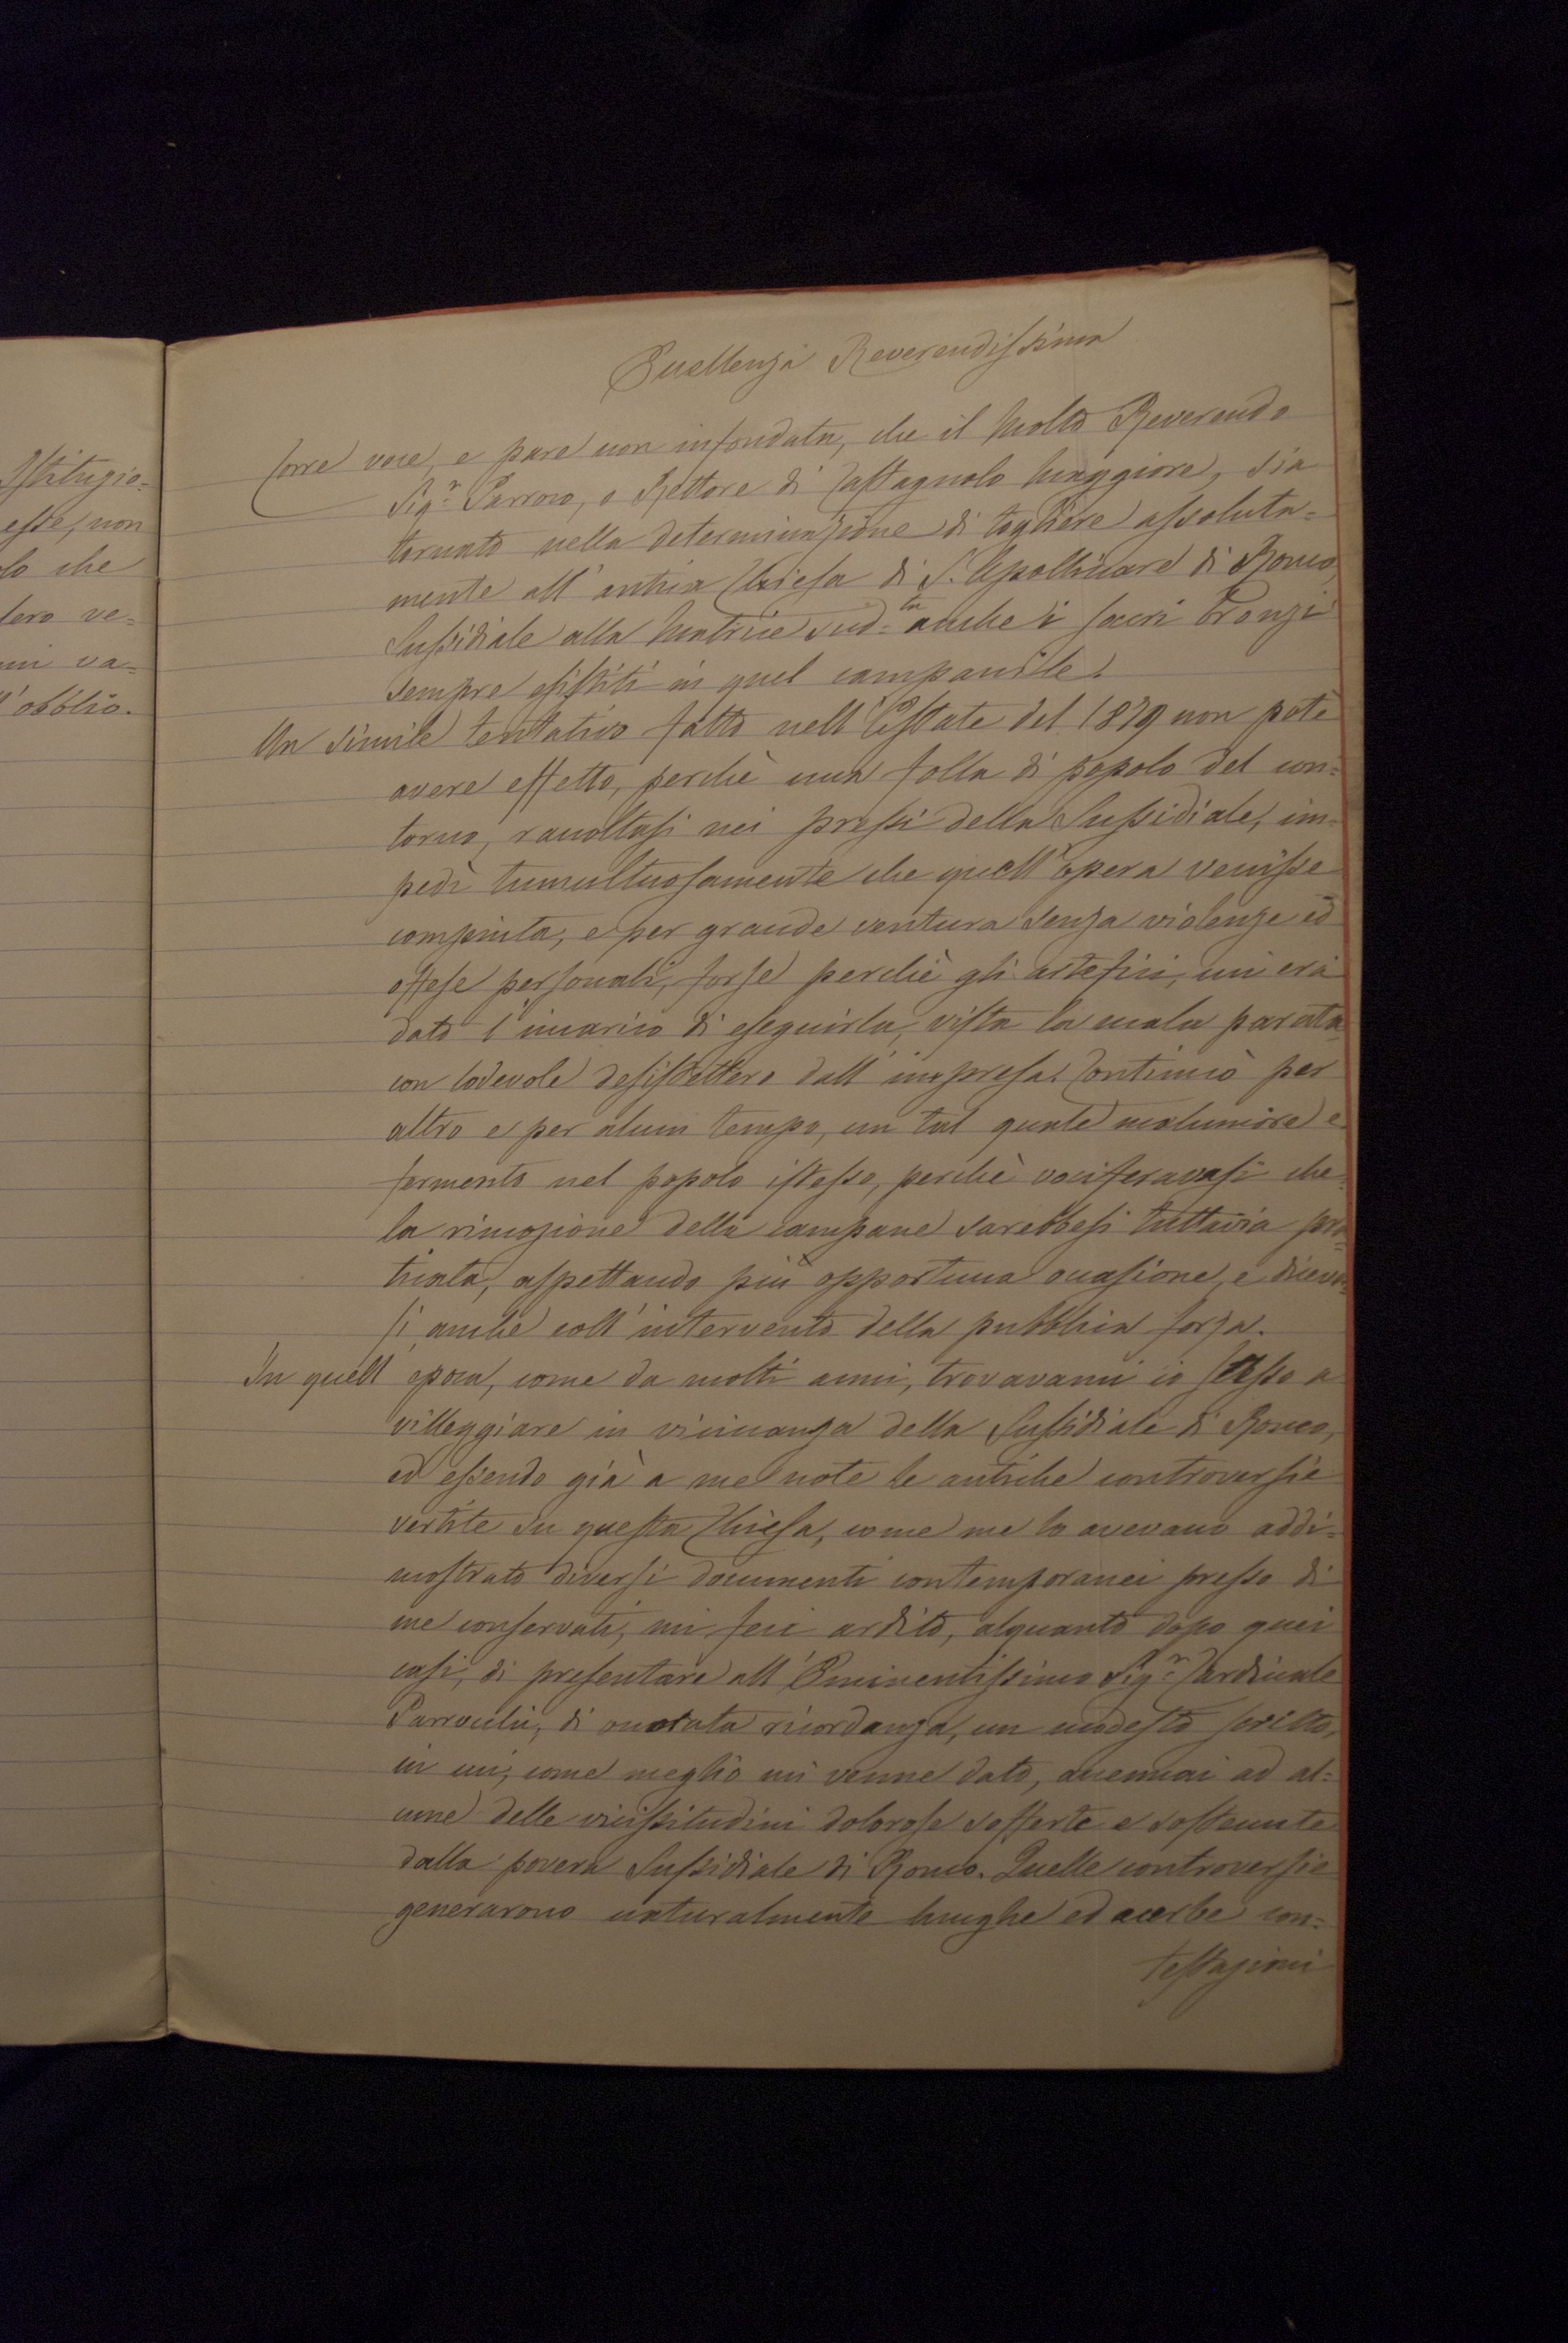 Istituzio=
esse, non
lo che
lero ve=
mi va=
l'obblio.
Eccellenza Reverendissima
Corre voce, e pare non infondata, che il Molto Reverendo
Sig.r Parroco, o Rettore di Castagnolo Maggiore, sia
tornato nella determinazione di togliere assoluta=
mente all'antica Chiesa di S. Apollinare di Ronco,
Sussidiale alla Matrice sud=ta anche i sacri bronzi
sempre esistiti in quel campanile.
Un simile tentativo fatto nell'Estate del 1879 non potè
avere effetto, perchè una folla di popolo del con=
torno, raccoltasi nei pressi della Sussidiale, im=
pedì tumultuosamente che quell'opera venisse
compiuta, e per grande ventura senza violenze ed
offese personali, forse perchè gli artefici, cui era
dato l'incarico di eseguirla, vista la mala parata,
con lodevole desistettero dall'impresa. Continuò per
altro e per alcun tempo, un tal quale malumore e
fermento nel popolo istesso, perchè vociferavasi che
la rimozione delle campane sarebbesi tuttavia pra=
ticata, aspettando più opportuna occasione, e diceva=
si anche coll'intervento della pubblica forza.
In quell'epoca, come da molti anni, trovavami io stesso a
villeggiare in vicinanza della Sussidiale di Ronco,
ed essendo già a me note le antiche controversie
vertite su questa Chiesa, come me lo avevano addi=
mostrato diversi documenti contemporanei presso di
me conservati, mi feci ardito, alquanto dopo quei
casi, di presentare all'Eminentissimo Sig.r Cardinale
Parocchi, di onorata ricordanza, un modesto scritto,
in cui, come meglio mi venne dato, accennai ad al=
cune delle vicissitudini dolorose sofferte e sostenute
dalla povera Sussidiale di Ronco. Quelle controversie
generarono naturalmente lunghe ed acerbe con=
testazioni